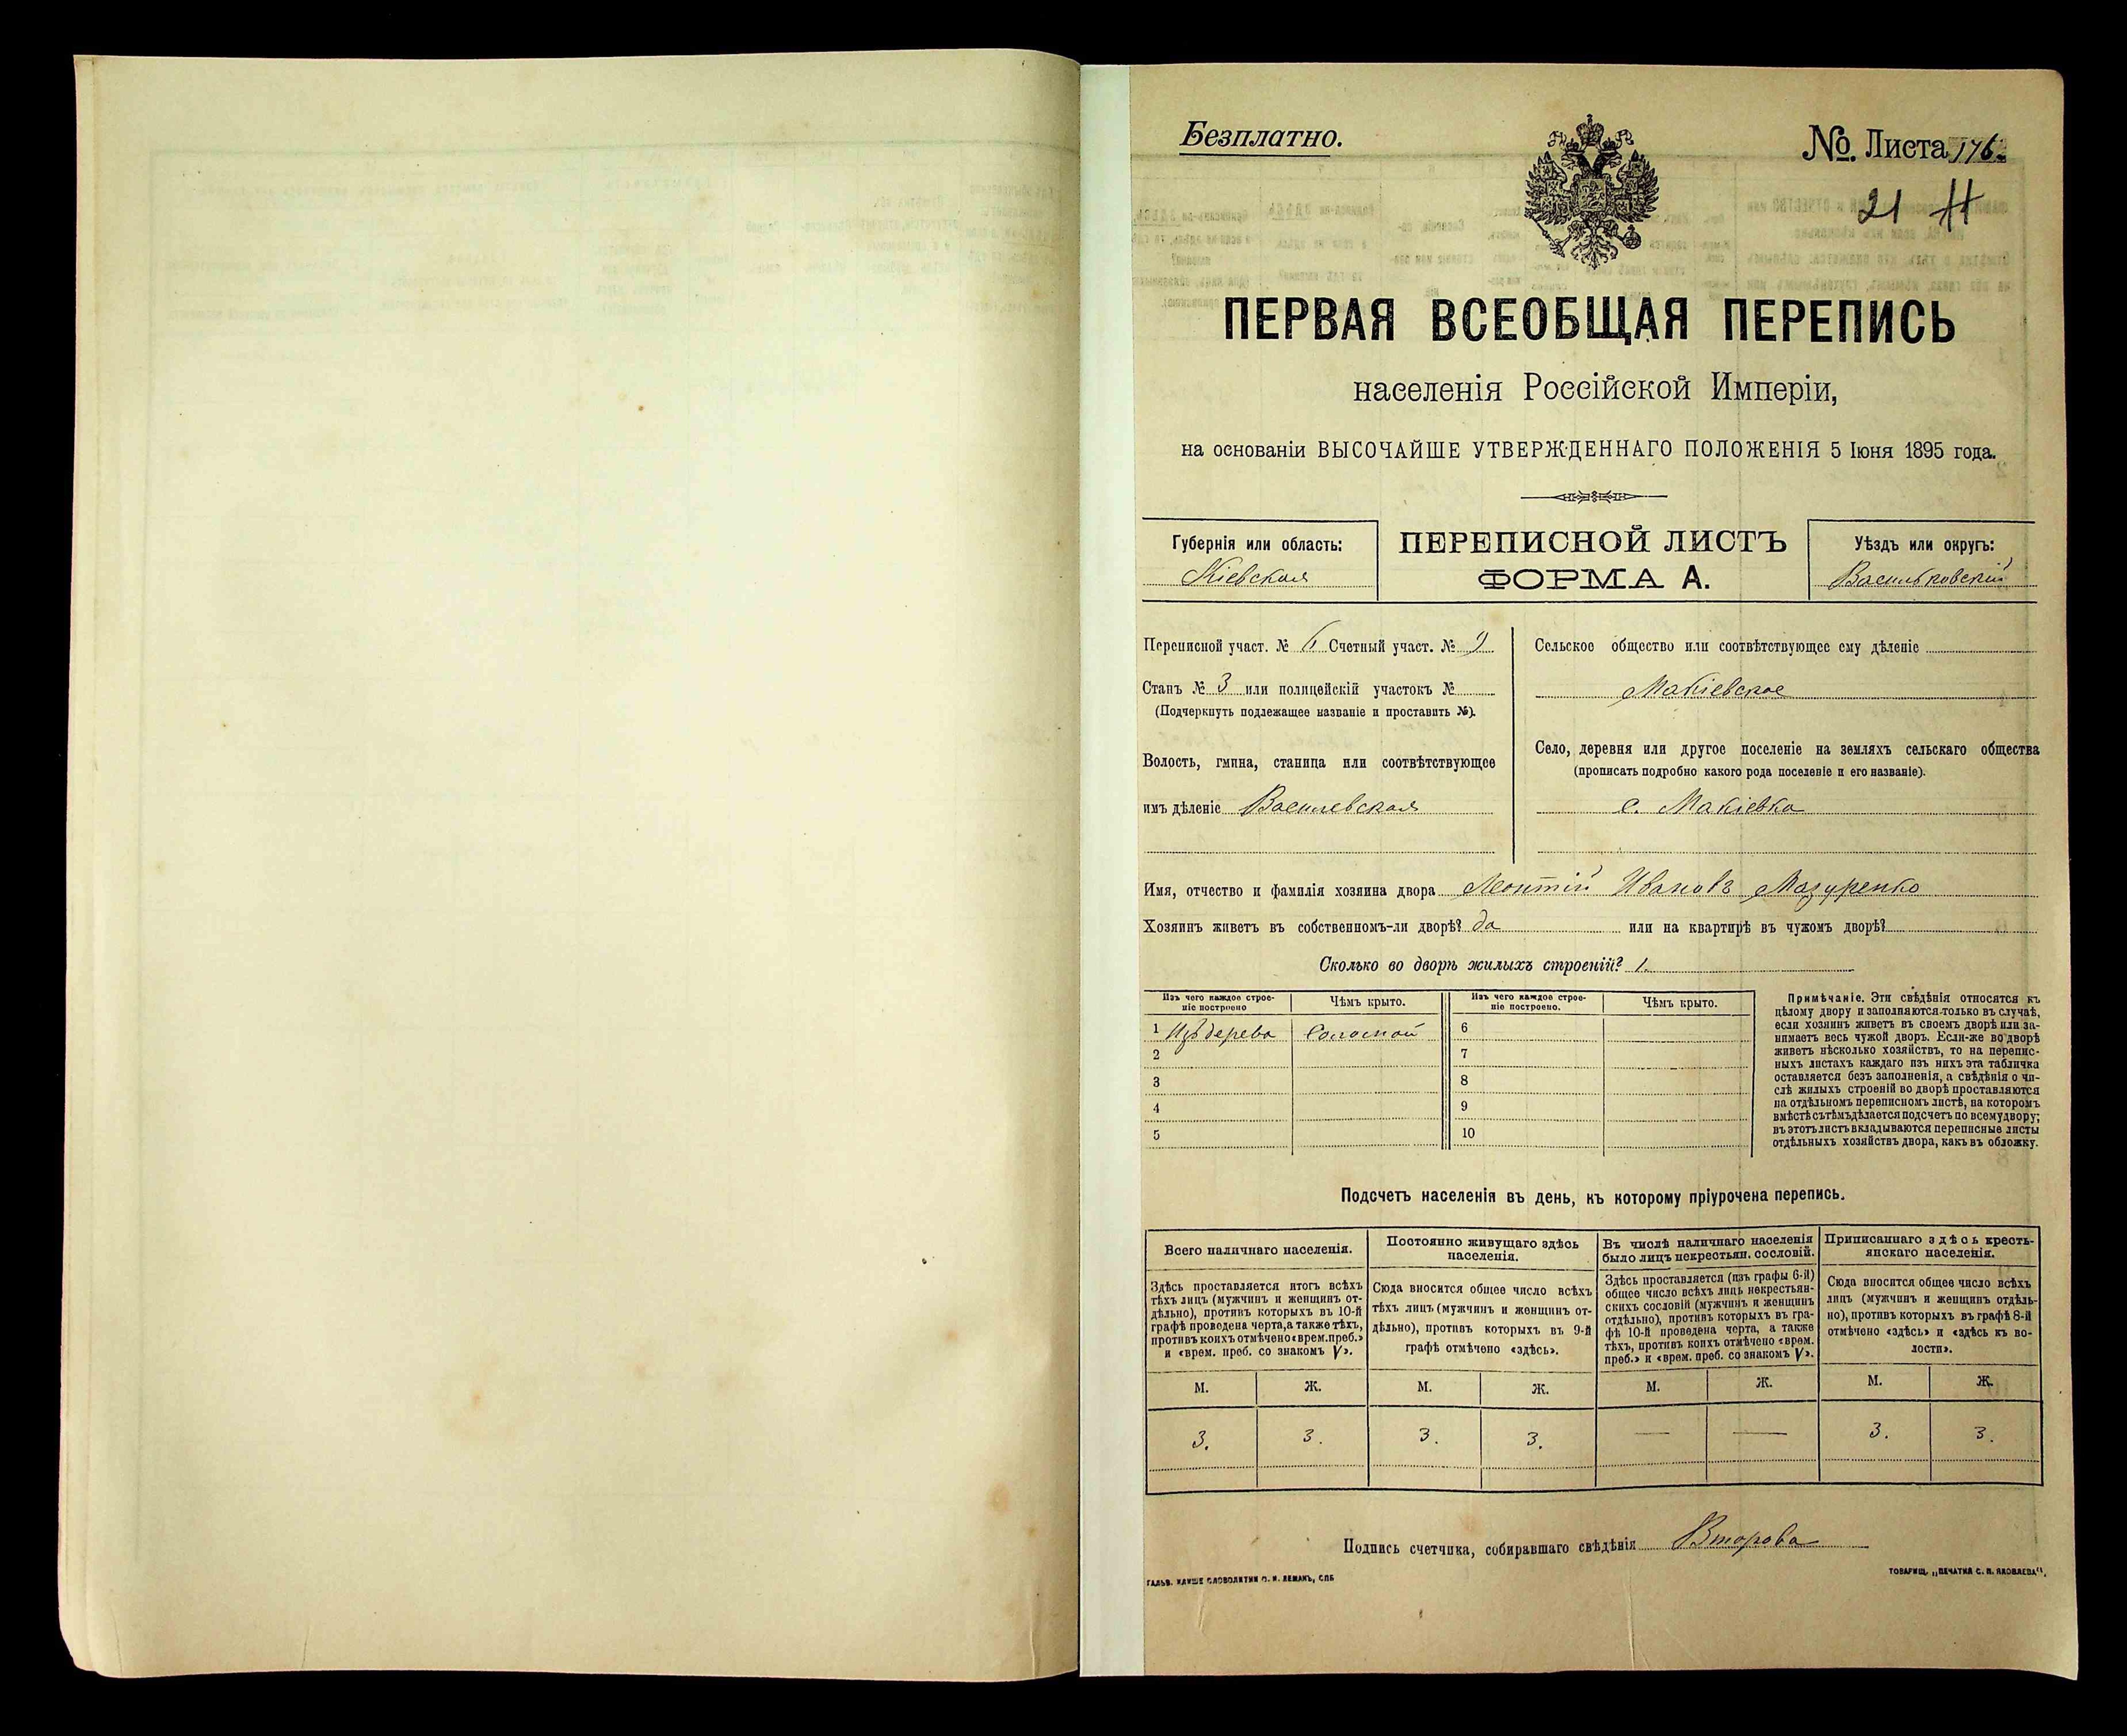 Безплатно.
№. Листа 176.
21
ПЕРВАЯ ВСЕОБЩАЯ ПЕРЕПИСЬ
населенія Россійской Имперіи,
на основаніи ВЫСОЧАЙШЕ УТВЕРЖДЕННАГО ПОЛОЖЕНІЯ 5 Іюня 1895 года.
Губернія или область:
Кіевская
ПЕРЕПИСНОЙ ЛИСТЪ
ФОРМА А.
Уѣздъ или округъ:
Васильковскій
Переписной участ. № 6 Счетный участ. № 9
Станъ № 3 или полицейскій участокъ №
(Подчеркнуть подлежащее названіе и проставить №).
Волость, гмина, станица или соотвѣтствующее
имъ дѣленіе Василевская
Сельское общество или соотвѣтствующее ему дѣленіе
Макіевское
Село, деревня или другое поселеніе на земляхъ сельскаго общества
(прописать подробно какого рода поселеніе и его названіе).
с. Макіевка
Имя, отчество и фамилія хозяина двора Леонтій Ивановъ Мазуренко
Хозяинъ живетъ въ собственномъ-ли дворѣ? да или на квартирѣ въ чужомъ дворѣ?
Сколько во дворѣ жилыхъ строеній? 1.
Изъ чего каждое строе-
ніе построено
Чѣмъ крыто.
Изъ чего каждое строе-
ніе построено.
Чѣмъ крыто.
1 Изъ дерева Соломой 6
2 7
3 8
4 9
5 10
Примѣчаніе. Эти свѣдѣнія относятся къ
цѣлому двору и заполняются только въ случаѣ,
если хозяинъ живетъ въ своемъ дворѣ или за-
нимаетъ весь чужой дворъ. Если-же во дворѣ
живетъ нѣсколько хозяйствъ, то на перепис-
ныхъ листахъ каждаго изъ нихъ эта табличка
оставляется безъ заполненія, а свѣдѣнія о чи-
слѣ жилыхъ строеній во дворѣ проставляются
на отдѣльномъ переписномъ листѣ, на которомъ
вмѣстѣ съ тѣмъ дѣлается подсчетъ по всему двору;
въ этотъ листъ вкладываются переписные листы
отдѣльныхъ хозяйствъ двора, какъ въ обложку.
Подсчетъ населенія въ день, къ которому пріурочена перепись.
Всего наличнаго населенія.
Здѣсь проставляется итогъ всѣхъ
тѣхъ лицъ (мужчинъ и женщинъ от-
дѣльно), противъ которыхъ въ 10-й
графѣ проведена черта, а также тѣхъ,
противъ коихъ отмѣчено «врем. преб.»
и «врем. преб. со знакомъ V».
Постоянно живущаго здѣсь
населенія.
Сюда вносится общее число всѣхъ
тѣхъ лицъ (мужчинъ и женщинъ от-
дѣльно), противъ которыхъ въ 9-й
графѣ отмѣчено «здѣсь».
Въ числѣ наличнаго населенія
было лицъ некрестьян. сословій.
Здѣсь проставляется (изъ графы 6-й)
общее число всѣхъ лицъ некрестьян-
скихъ сословій (мужчинъ и женщинъ
отдѣльно), противъ которыхъ въ гра-
фѣ 10-й проведена черта, а также
тѣхъ, противъ коихъ отмѣчено «врем.
преб.» и «врем. преб. со знакомъ V».
Приписаннаго здѣсь кресть-
янскаго населенія.
Сюда вносится общее число всѣхъ
лицъ (мужчинъ и женщинъ отдѣль-
но), противъ которыхъ въ графѣ 8-й
отмѣчено «здѣсь» и «здѣсь къ во-
лости».
М. Ж. М. Ж. М. Ж. М. Ж.
3. 3. 3. 3. — — 3. 3.
Подпись счетчика, собиравшаго свѣдѣнія Второва
ГАЛЬВ. КЛИШЕ СЛОВОЛИТНИ О. И. ЛЕМАНЪ, СПБ
ТОВАРИЩ. „ПЕЧАТНЯ С. П. ЯКОВЛЕВА“.